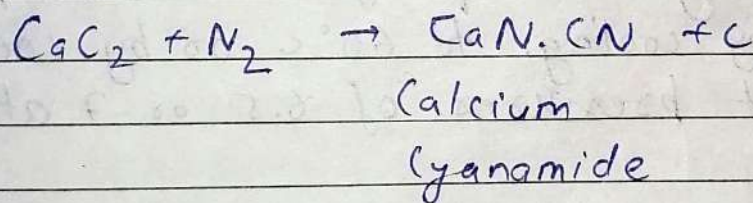 CaC₂ + N₂ → CaN.CN + C
Calcium
Cyanamide